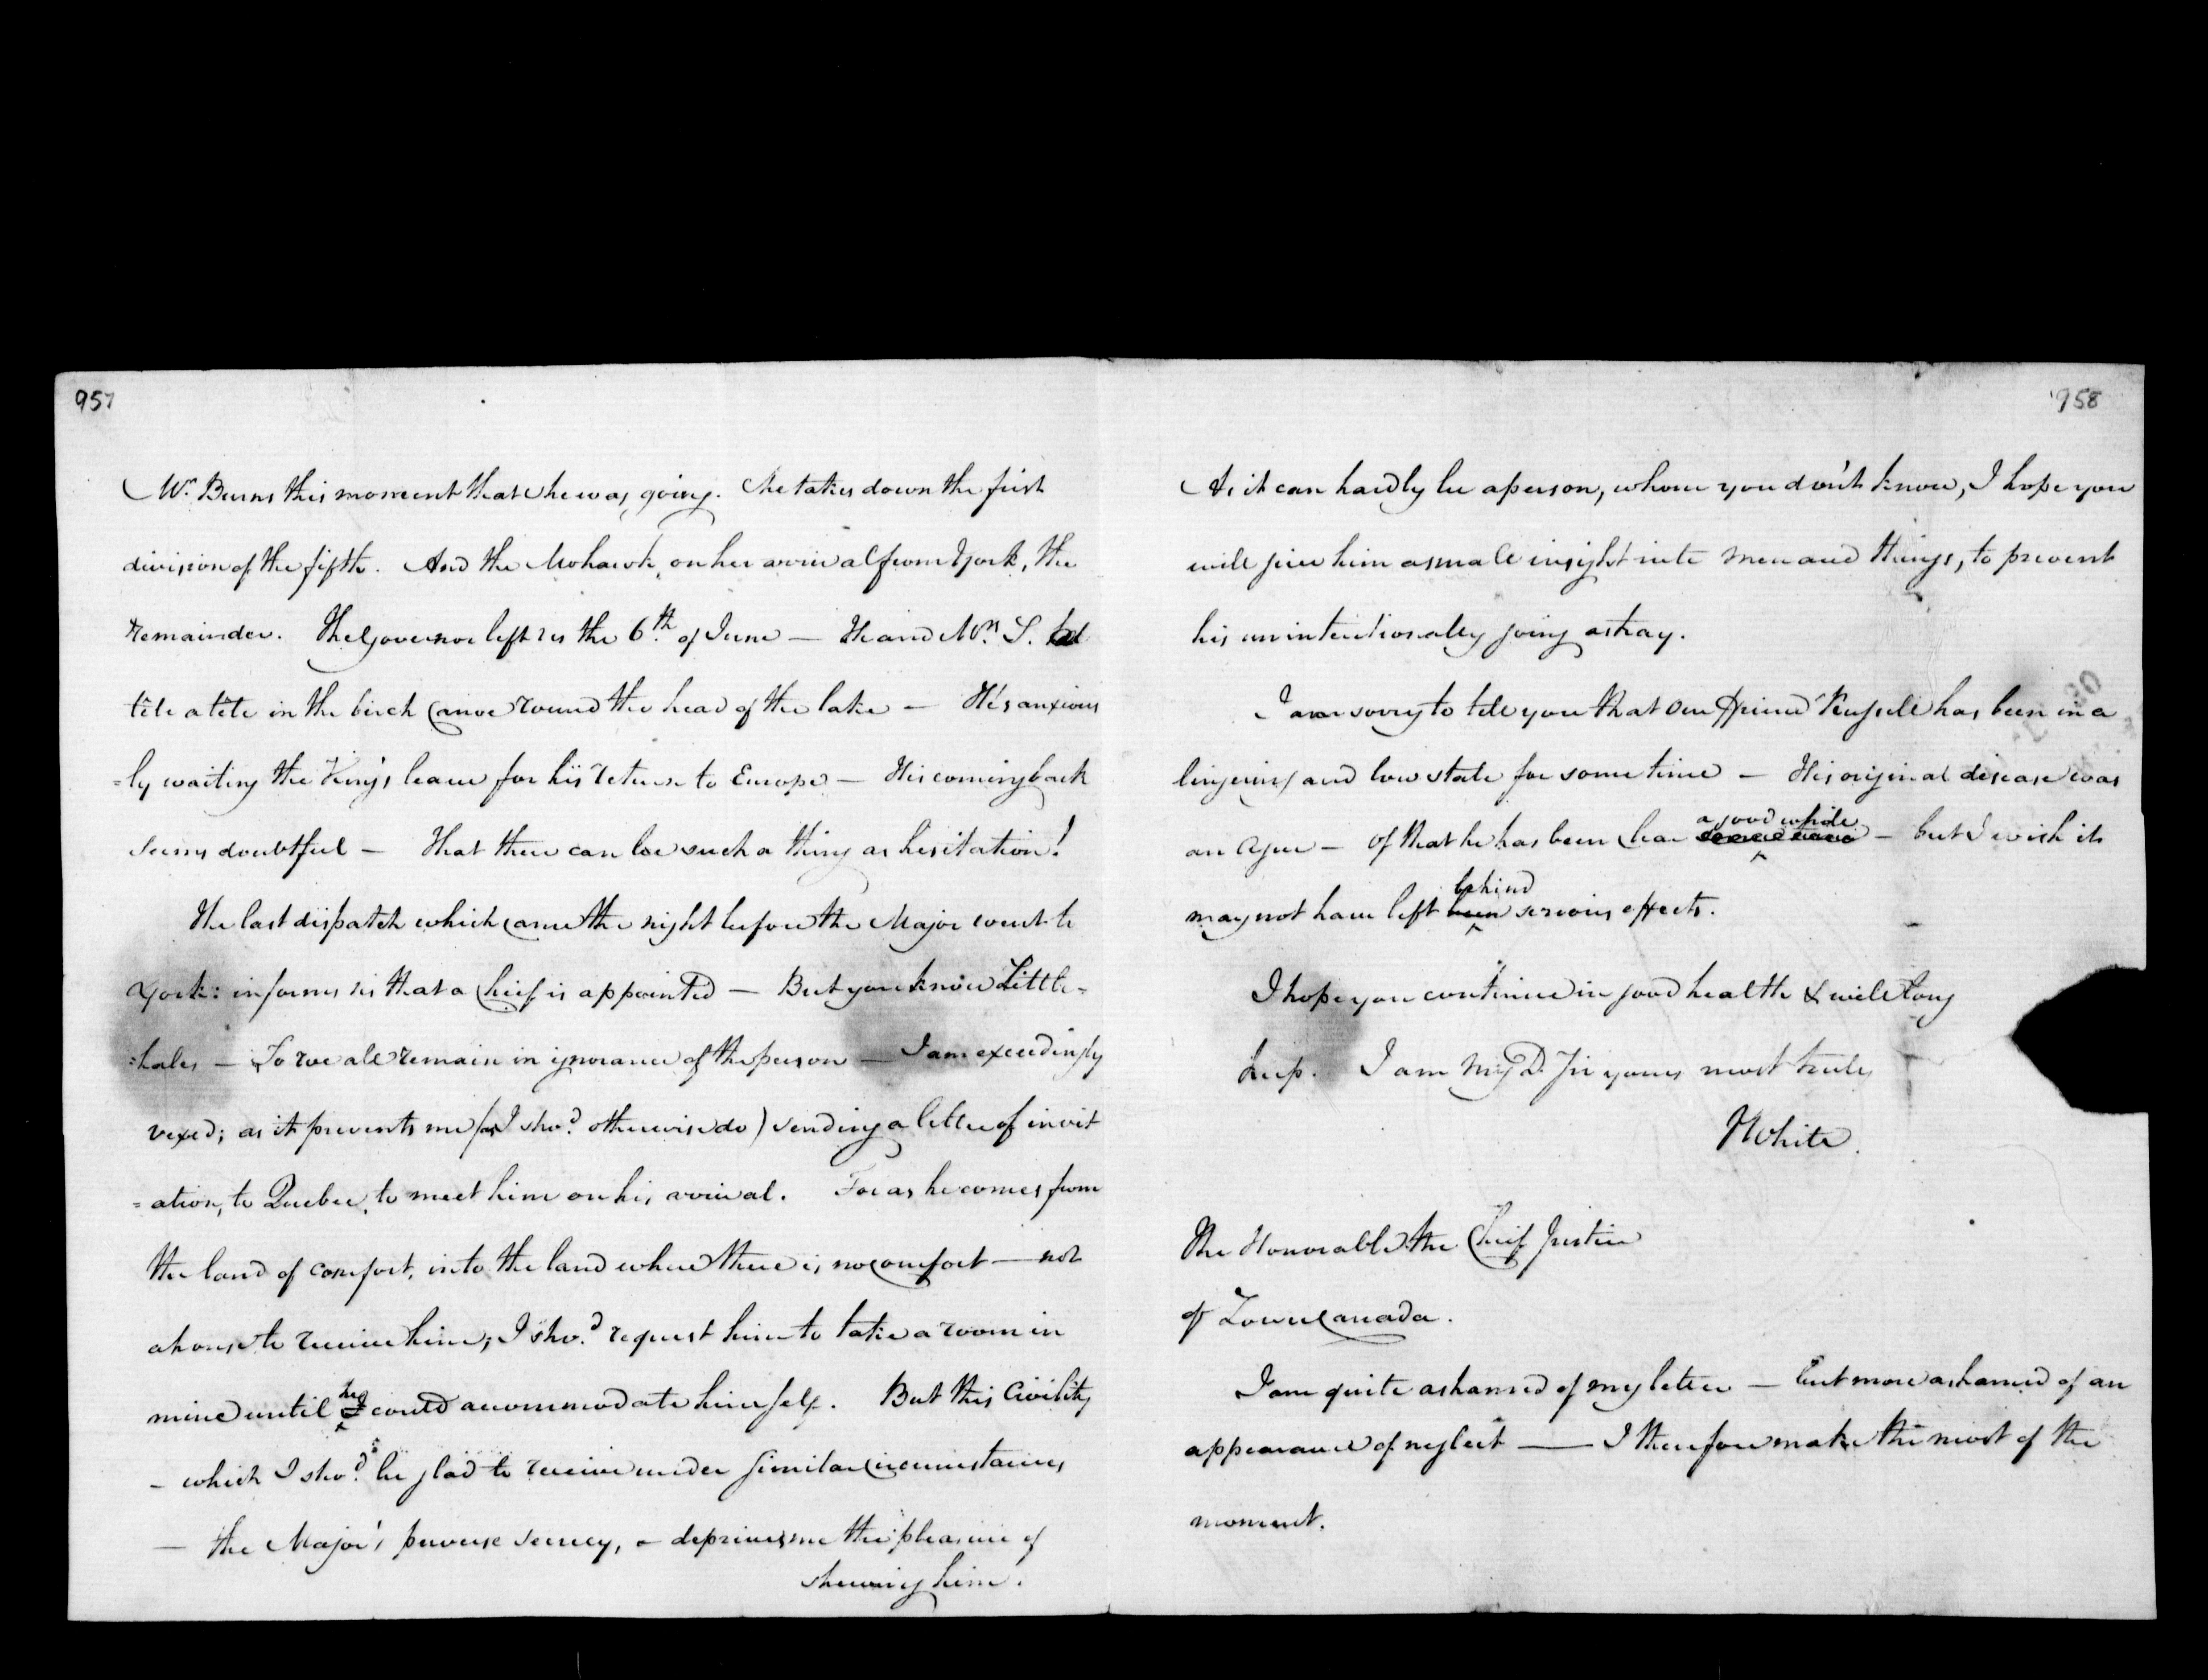 957
Mr. Burns this moment that she was going. She takes down the first
division of the fifth. And the Mohawk, on her arrival from York, the
remainder. The Governor left us the 6th. of June — He and Mrs. S.
tête a tête in the birch Canoe round the head of the lake — He's anxious
=ly waiting the King's leave for his return to Europe — His coming back
seems doubtful — That there can be such a thing as hesitation!
The last dispatch which came the night before the Major went to
York: informs us that a Chief is appointed — But you know Little=
=hales — So we all remain in ignorance of the person — I am exceedingly
vexed; as it prevents me (as I shod. otherwise do) sending a letter of invit
=ation, to Quebec, to meet him on his arrival. For as he comes from
the land of comfort, into the land where there is no comfort — not
a house to receive him; I shod. request him to take a room in
mine until he could accommodate himself. But this Civility
– which I shod. be glad to receive under similar circumstances
— the Major's perverse secrecy, – deprives me the pleasure of
shewing him.
958
As it can hardly be a person, whom you don't know, I hope you
will give him a small insight into men and things, to prevent
his unintentionally going astray.
I am sorry to tell you that our friend Russell has been in a
lingering and low state for some time — His original disease was
an Ague — of that he has been clear some time a good while — but I wish it
may not have left been behind serious effects.
I hope you continue in good health & will long
keep. I am My D. Sir yours most truly
JWhite.
The Honorable the Chief Justice
of Lower Canada.
I am quite ashamed of my letter — but more ashamed of an
appearance of neglect —— I therefore make the most of the
moment.